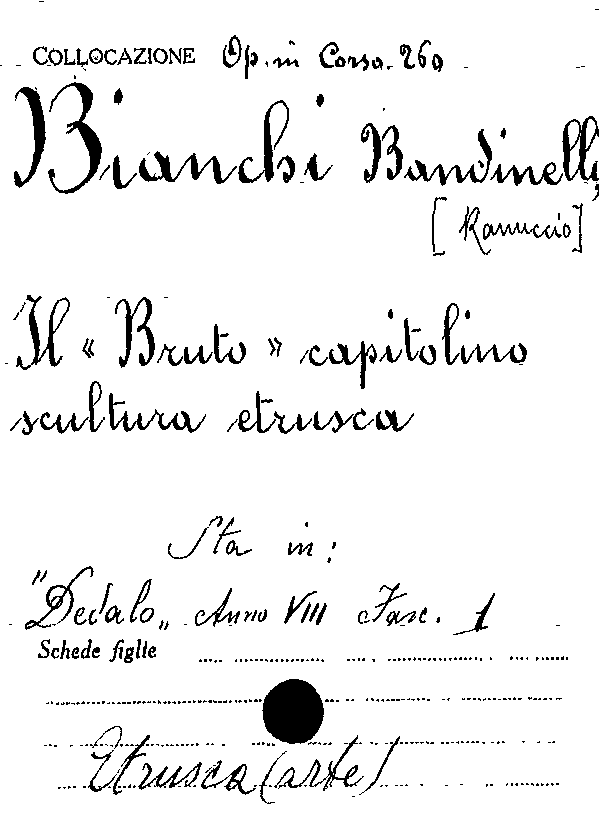 COLLOCAZIONE Op. in Corso. 260
Bianchi Bandinelli,
[Ranuccio]
Il « Bruto » capitolino
scultura etrusca
Sta in:
"Dedalo„ Anno VIII Fasc. 1
Schede figlie
Etrusca (arte)